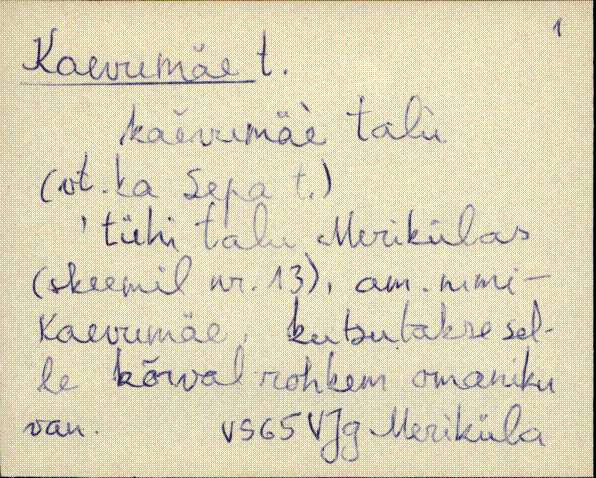 1
Kaevumäe t.
kaèvumäè talù
(vt. ka Sepa t.)
' tühi talu Merikülas
(skeemil nr. 13), am. nimi -
Kaevumäe, kutsutakse sel-
le kõrval rohkem omaniku
van. VS65 VJg Meriküla